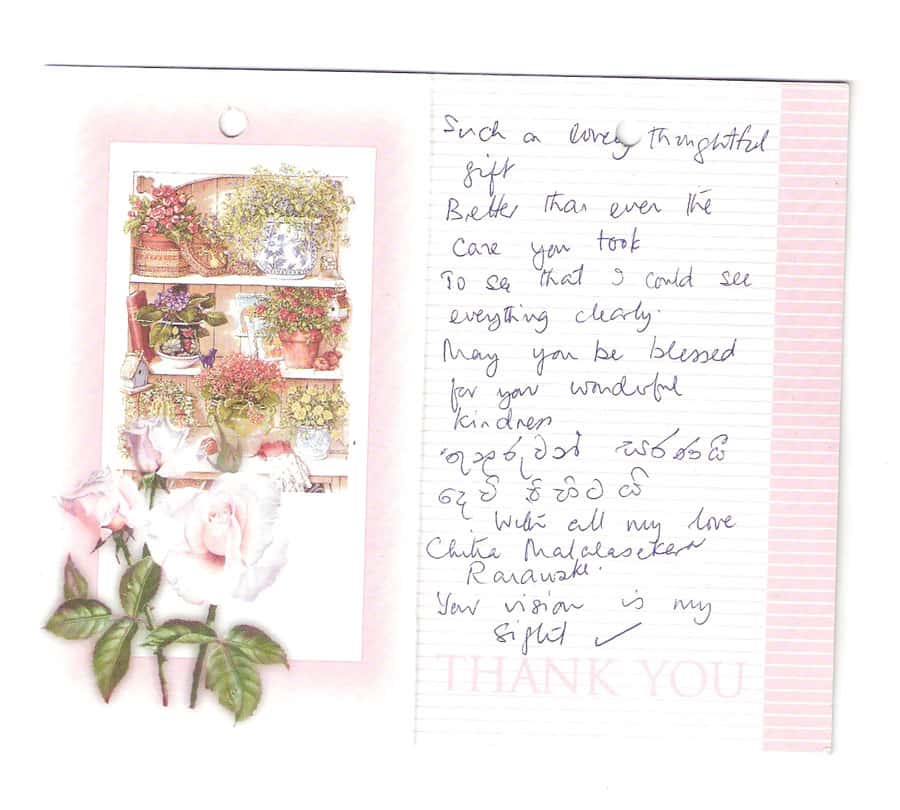 Such a lovely thoughtful
gift
Better than even the
care you took
To see that I could see
everything clearly.
May you be blessed
for your wonderful
kindness
තුනුරුවන් සරණයි
දෙවි පිහිටයි
With all my love
Chitra Malalasekera
Your vision is my
sight ✓
THANK YOU